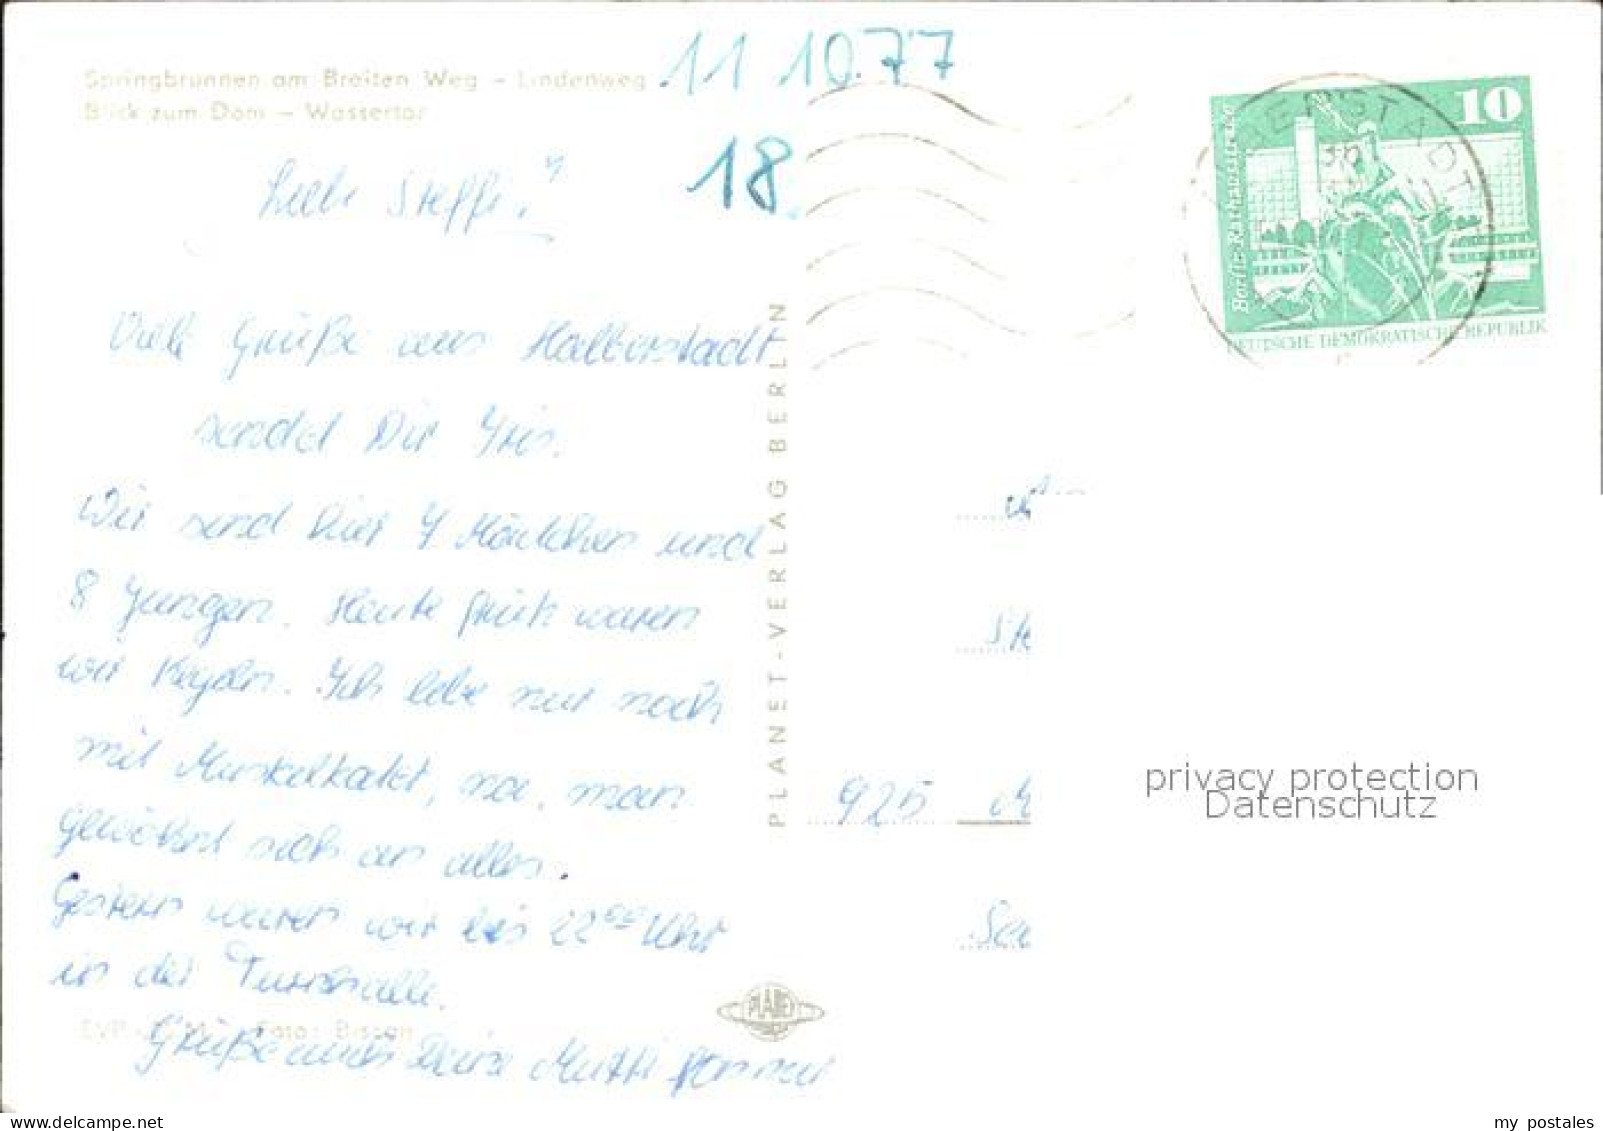 Springbrunnen am Breiten Weg – Lindenweg
Blick zum Dom – Wassertor
11 10.77
18.
Liebe Steffi!
Viele Grüße aus Halberstadt
sendet Dir Iris.
Wir sind hier 4 Mädchen und
8 Jungen. Heute früh waren
wir Kegeln. Ich lebe nur noch
mit Muskelkater, na, man
gewöhnt sich an alles.
Gestern waren wir bis 22⁰⁰ Uhr
in der Turnhalle.
Grüße auch Deine Mutti von mir
EVP Foto: Bissan
PLANET-VERLAG BERLIN
PLANET
BERSTADT
10
Berlin-Rathausstraße
DEUTSCHE DEMOKRATISCHE REPUBLIK
925 M
privacy protection
Datenschutz
delcampe.net
my_postales